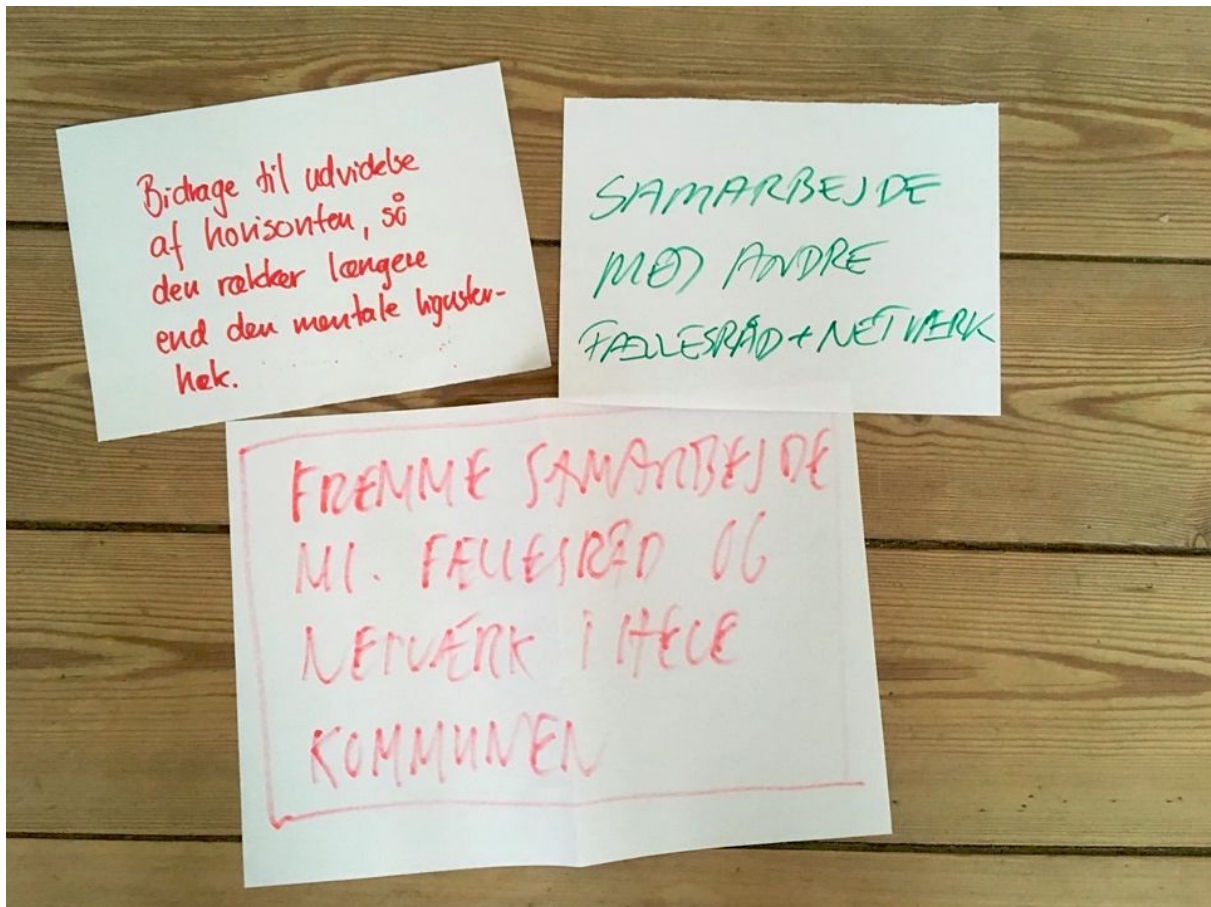 Bidrage til udvidelse
af horisonten, så
den rækker længere
end den mentale liguster-
hæk.
SAMARBEJDE
MED ANDRE
FÆLLESRÅD + NETVÆRK
FREMME SAMARBEJDE
ML. FÆLLESRÅD OG
NETVÆRK I HELE
KOMMUNEN